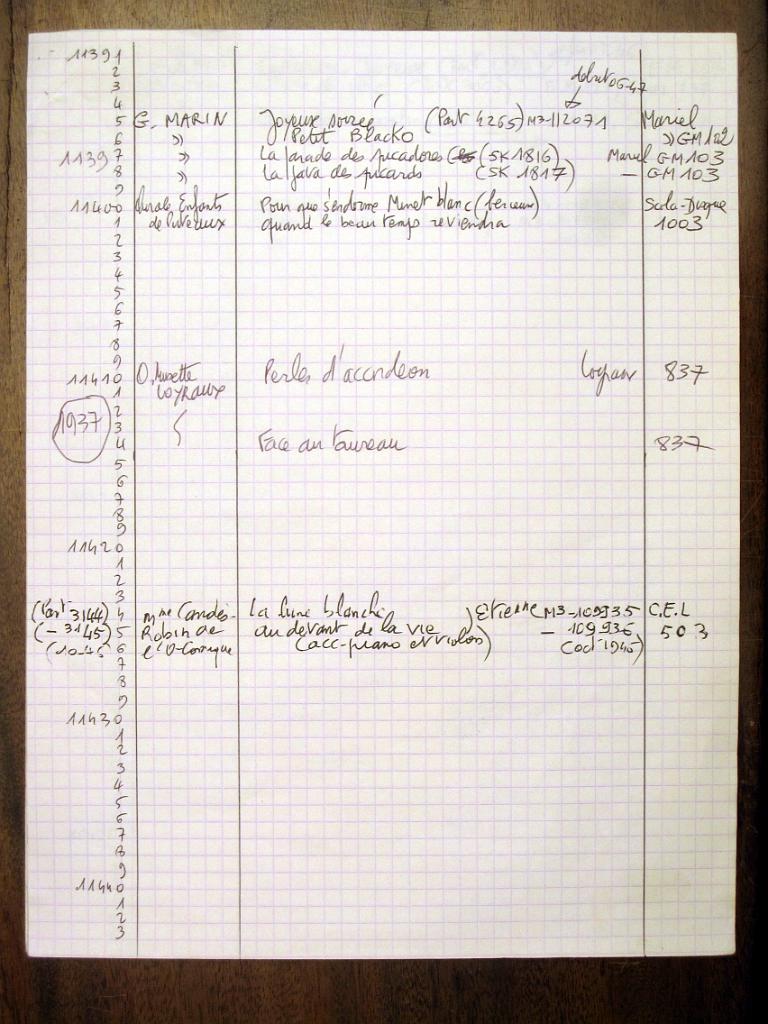 11391
2
3 début 06-47
4
5 G. MARIN Joyeuse soirée (Part 4265) M3-112071 Mariel
6 » Petit Blacko » GM 102
11397 » La parade des picadores (5K 1816) Mariel GM 103
8 » La java des picards (5K 1817) — GM 103
9
11400 Chorale Enfants Pour que s'endorme Minet blanc (berceuse) Scola-Disque
1 de Puteaux quand le beau temps reviendra 1003
2
3
4
5
6
7
8
9
11410 O. Musette Perles d'accordéon Loyraux 837
1 LOYRAUX
2
1937 3
4 Face au taureau 837
5
6
7
8
9
11420
1
2
3
(Part 3144) 4 Mme La lune blanche Etienne M3-109935 C.E.L
(- 3145) 5 Robin de au devant de la vie - 109936 503
(10-45 6 l'O-Comique (acc-piano et violon) (oct-1945)
7
8
9
11430
1
2
3
4
5
6
7
8
9
11440
1
2
3